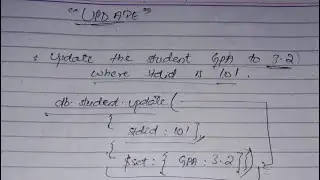 "UPDATE"
* Update the student GPA to 3.2
where stdid is 101.
db.student.update(
{
stdid : 101 },
{
$set : { GPA : 3.2 } })